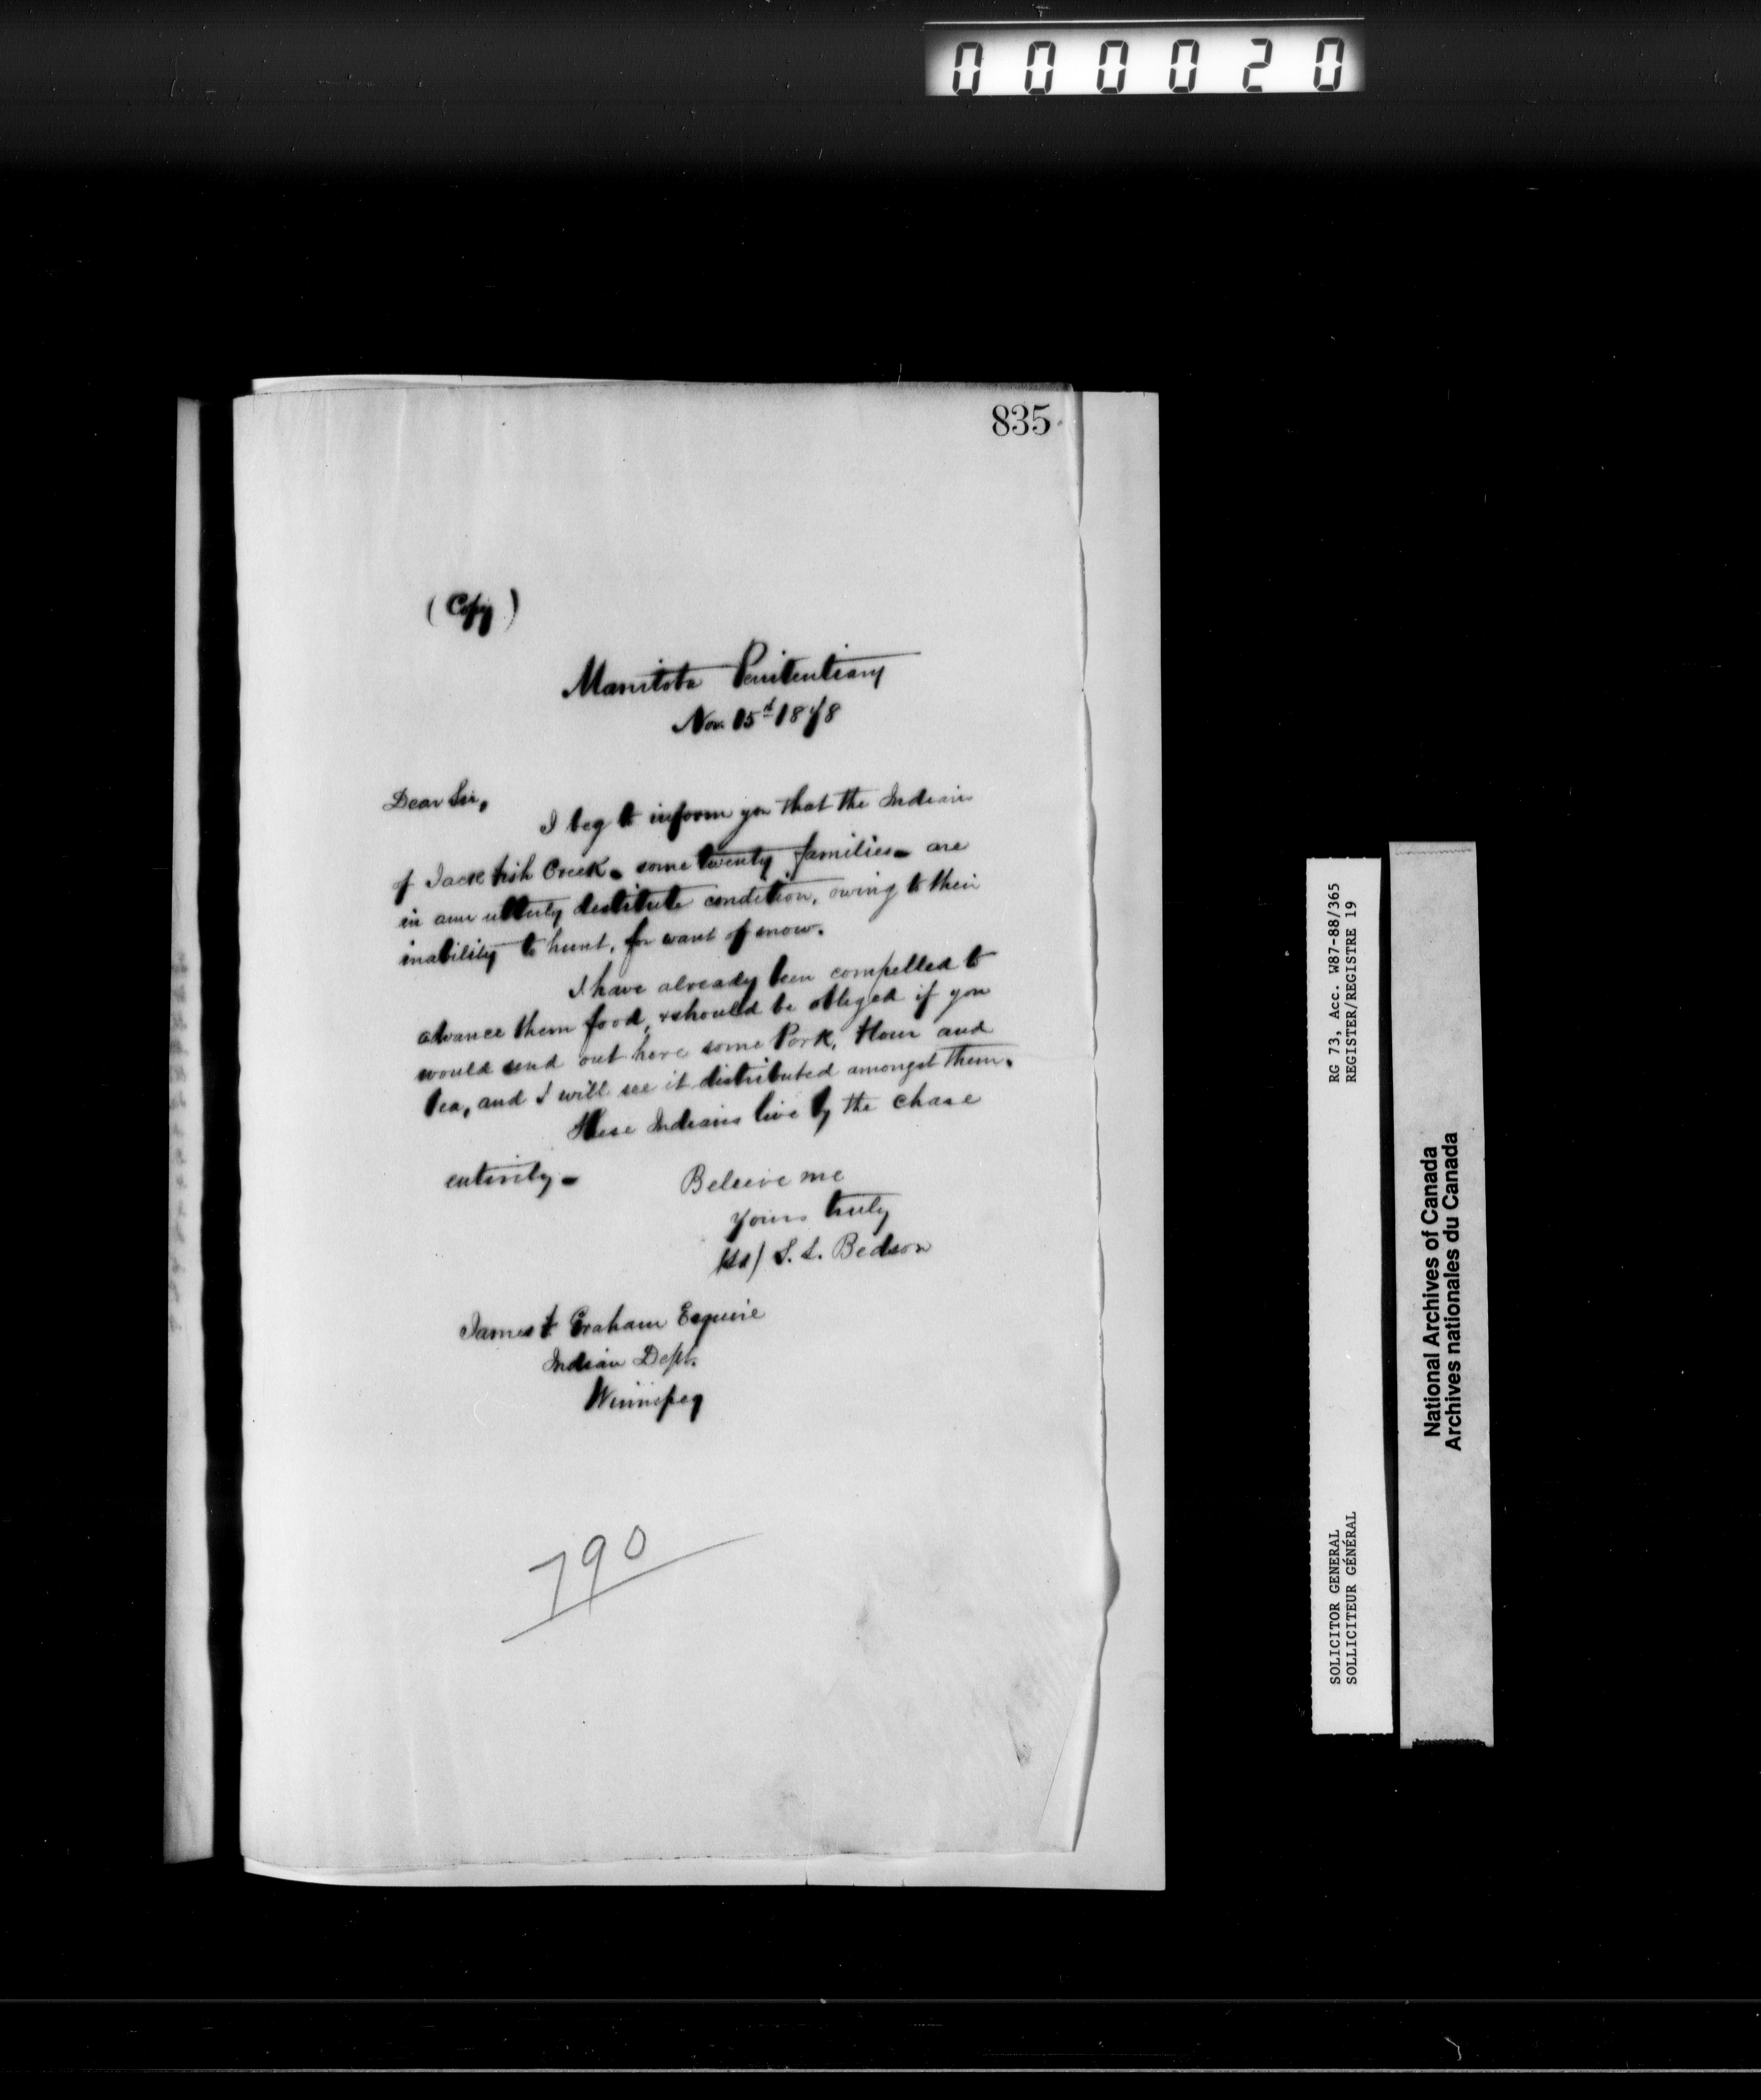 000020
835
(Copy)
Manitoba Penitentiary
Nov. 15d 1878
Dear Sir,
I beg to inform you that the Indians
of Jack fish Creek - some twenty families - are
in an utterly destitute condition, owing to their
inability to hunt, for want of snow.
I have already been compelled to
advance them food, & should be obliged if you
would send out here some Pork, flour and
tea, and I will see it distributed amongst them.
These Indians live by the chase
entirely -
Beleive me
yours truly
(sd) S. L. Bedson
James F Graham Esquire
Indian Dept.
Winnipeg
790
RG 73, Acc. W87-88/365
REGISTER/REGISTRE 19
SOLICITOR GENERAL
SOLLICITEUR GÉNÉRAL
National Archives of Canada
Archives nationales du Canada